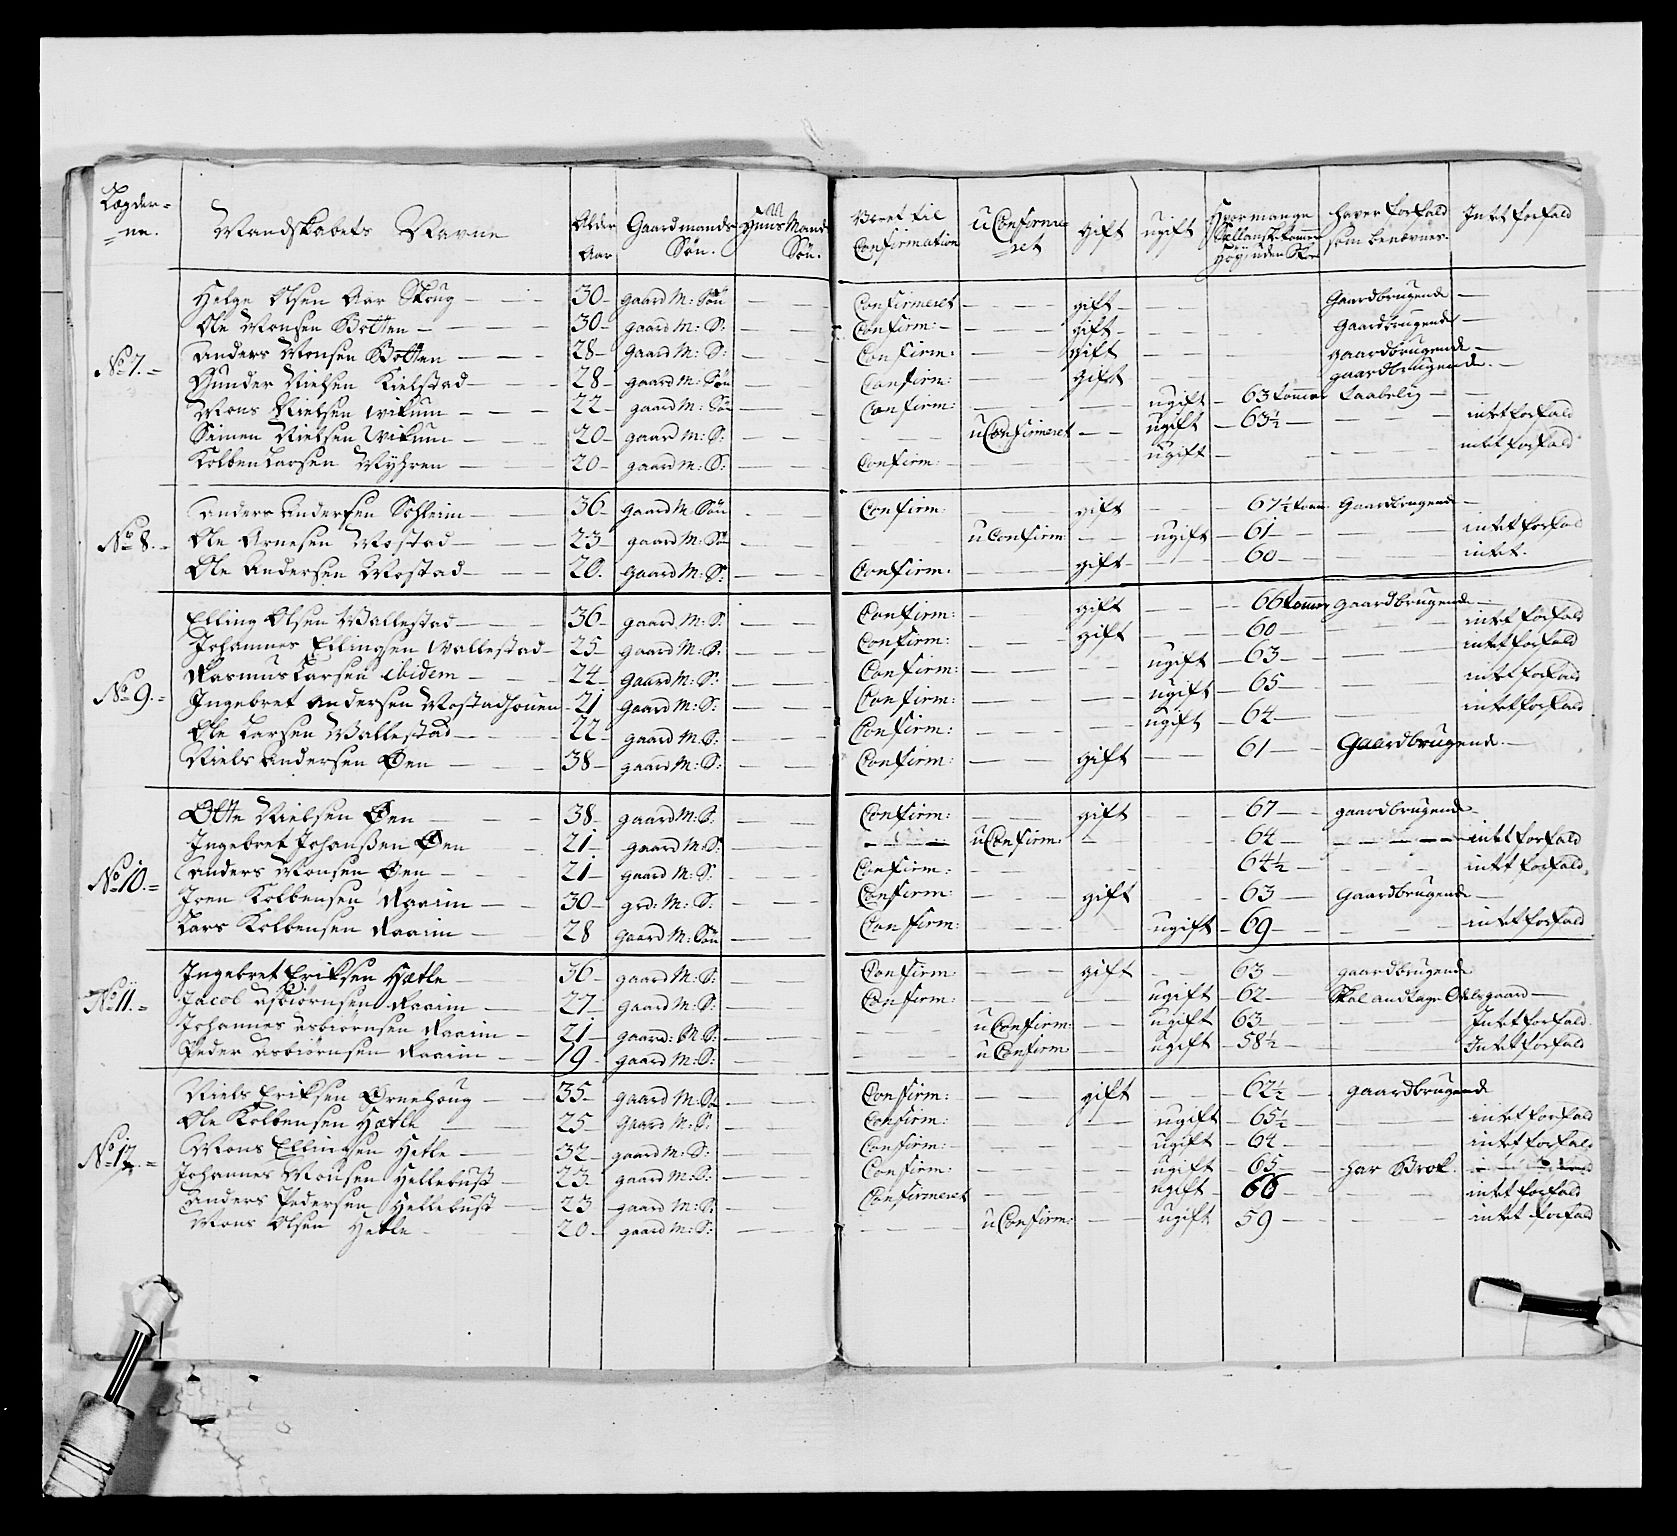 Lægder= =ne. Mandskabets Navne Alder Aar Gaardmands Søn. Huusmands Søn. Været til Confirmation uConfirme=ret gift ugift Hvormange Siællansk. Tommer høy uden Skoe haver forfald som benævnes. Intet forfald
Helge Olsen Aar Skoug 30 gaard M: Søn Confirmeret gift Gaardbrugende
Ole Monsen Botten 30 gaard M: S: Confirm: gift Gaardbrugende
No 7. Anders Monsen Botten 28 Gaard M: S: Confirm: gift gaardbrugende
Gunder Nielsen Kielstad 28 gaard M: Søn Confirm: gift gaardbrugende
Mons Nielsen Wikum 22 gaard M: Søn Confirm: ugift 63 tommer taabelig
Seimen Nielsen Wikum 20 gaar M: S: uConfirmeret ugift 63½ intet forfald
Kolben Larsen Myhren 20 gaard M: S: Confirm: ugift intet forfald
Anders Andersen Schleim 36 gaard M: Søn Confirm: gift 67½ tom: Gaardbrugende
No 8. Ole Arnesen Mostad 23 gaard M: Søn uConfirm: ugift 61 intet forfald
Ole Andersen Mostad 20. gaard M: S: Confirm: gift 60 intet.
Elling Olsen Wallestad 36 gaard M: S. Confirm: gift 66 tommer gaardbrugende
Johannes Ellingsen Wallestad 25 gaard M: S: Confirm: gift 60 intet forfald
Rasmus Larsen ibidem 24 gaard M: S: Confirm: ugift 63 intet forfald
No 9. Ingebret Andersen Mostadhouen 21 gaard M: S: Confirm: ugift 65 intet forfald
Ole Larsen Wallestad 22 gaard M: S: Confirm: ugift 64 intet forfald
Niels Andersen Øen 38 gaard M: S: Confirm: gift 61 Gaardbrugende.
Otte Nielsen Øen 38 gaard M: S: Confirm: gift 67 gaardbrugende
Ingebret Johanßen Øen 21 gaard M: S: uConfirm: 64 intet forfald
No 10. Anders Monsen Øen 21 gaard M: S: Confirm: 64½ intet forfald,
Joen Kolbensen Raaim 30 grd: M: S: Confirm: gift 63 Gaardbrugende
Lars Kolbensen Raaim 28 gaard M: Søn Confirm: ugift 69 intet forfald
Ingebret Eriksen Hætle 36 gaard M: S: Confirm: gift 63 gaardbrugende
No 11. Jacob Asbiørnsen Raaim 27 gaard M: S: Confirm: ugift 62 Skal andtage Odelsgaard
Johannes Asbiørnsen Raaim 21 gaard: M: S: uConfirm: ugift 63 Intet forfald
Peder Asbiørnsen Raaim 19 gaard M: S: uConfirm ugift 58½ Intet forfald
Niels Eriksen Ørnehoug 35 gaard M: S: Confirm: gift 62½ gaardbrugende
Ole Kolbensen Hætle 25 Gaard M: S: Confirm: ugift 65½ intet forfald
No 12. Mons Ellingsen Hetle 32 gaard M: S: Confirm: ugift 64 intet forfald
Johannes Monsen Hellebust 23 gaard M: S: Confirm: ugift 65 har Brok
Anders Pedersen Hellebust 23 gaard M: S: Confirmeret ugift 66 intet forfald
Mons Olsen Hetle 20 gaard M: S: uConfirm: ugift 59 intet forfald